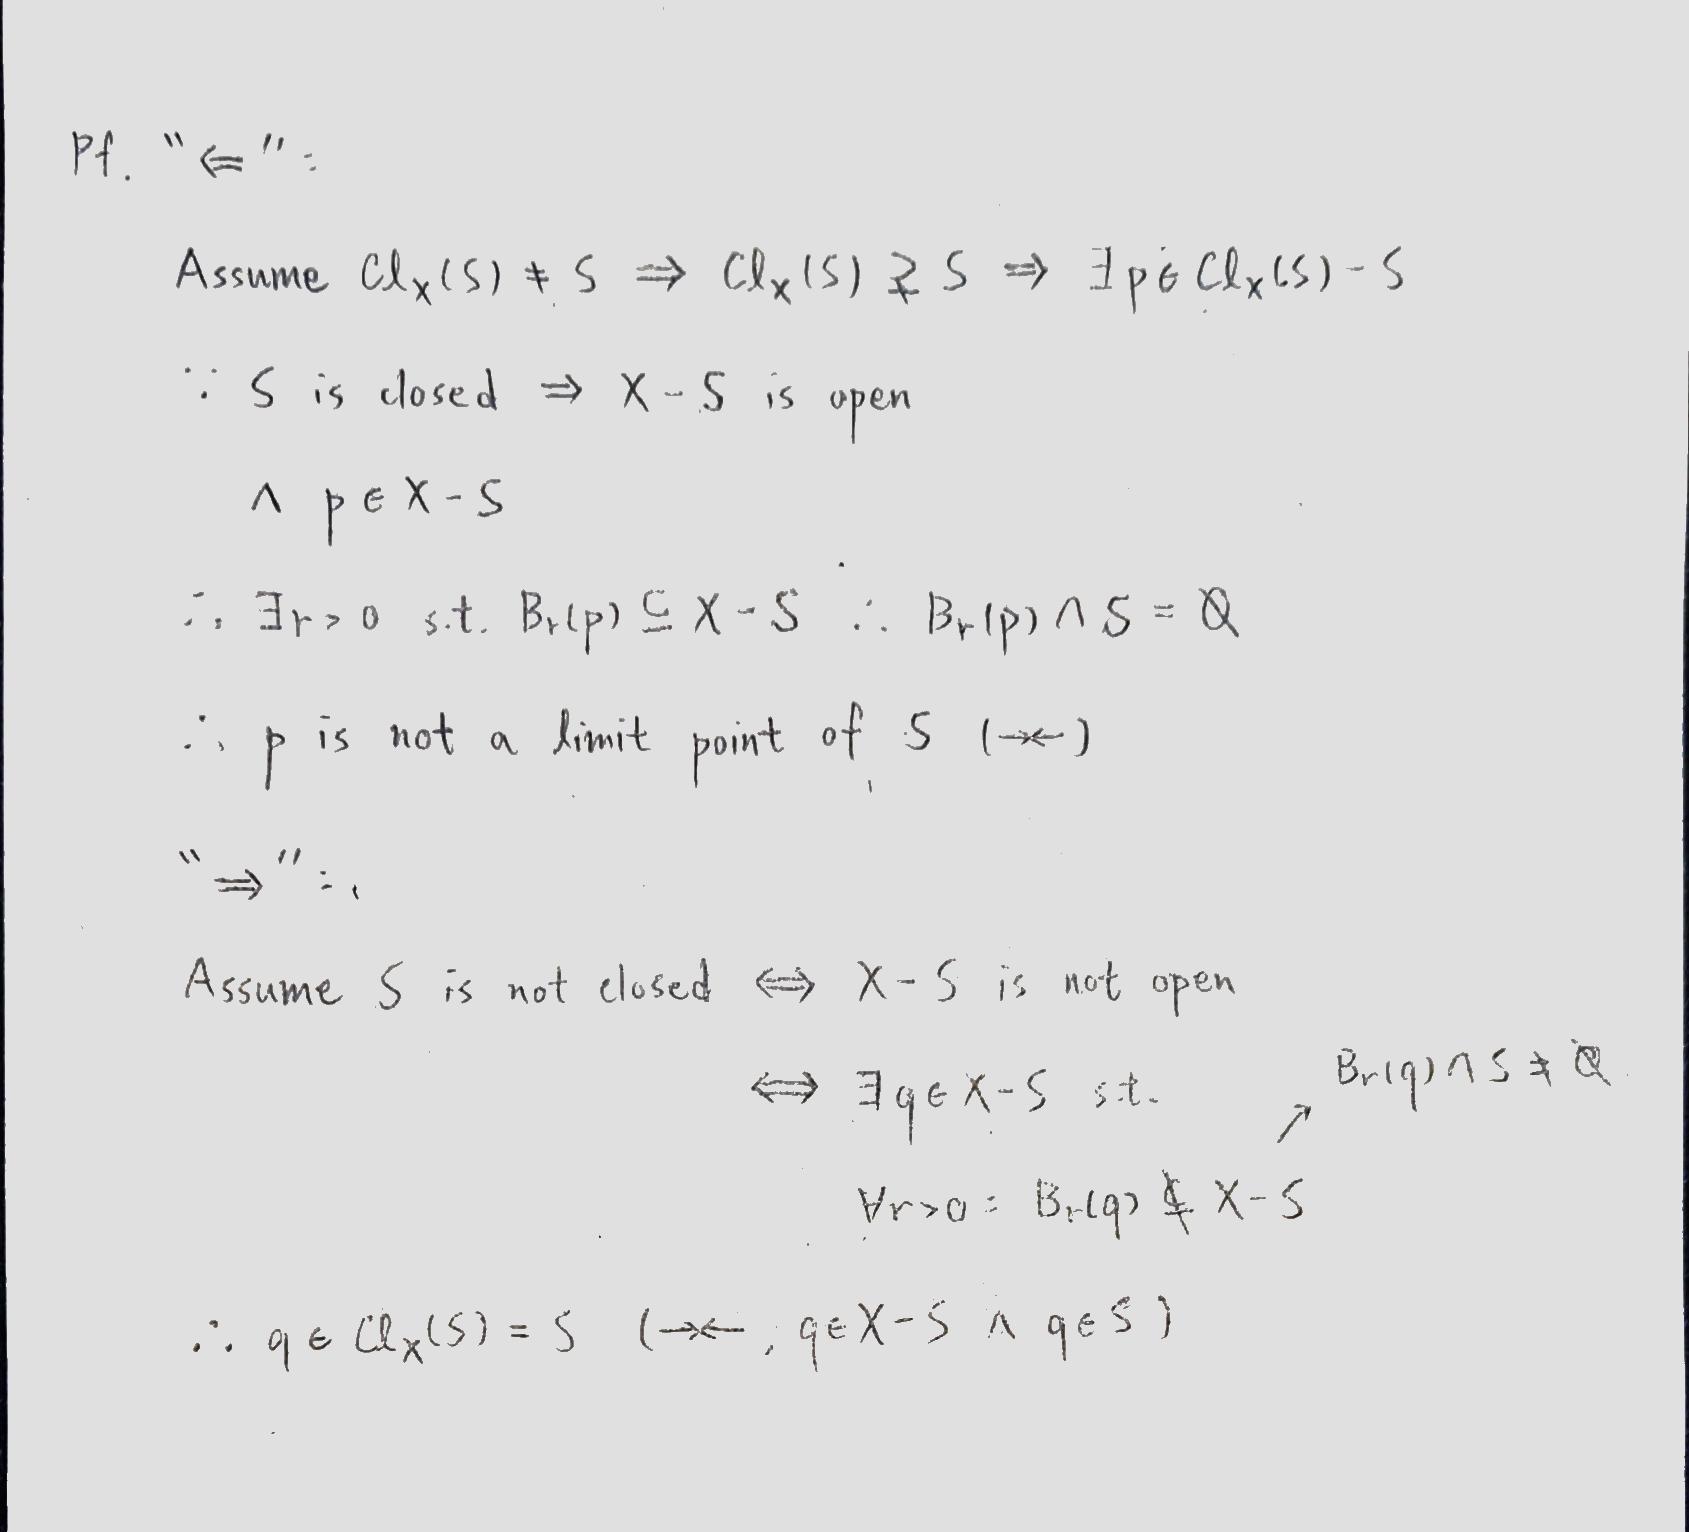 Pf. "⇐":
Assume Clₓ(S) ≠ S ⇒ Clₓ(S) ⊋ S ⇒ ∃p∈Clₓ(S)-S
∵ S is closed ⇒ X-S is open
∧ p∈X-S
∴ ∃r>0 s.t. Bᵣ(p) ⊆ X-S ∴ Bᵣ(p)∩S = ∅
∴ p is not a limit point of S (→←)
"⇒":
Assume S is not closed ⇔ X-S is not open
⇔ ∃q∈X-S s.t.
∀r>0: Bᵣ(q) ⊈ X-S ↗ Bᵣ(q)∩S ≠ ∅
∴ q∈Clₓ(S) = S (→←, q∈X-S ∧ q∈S)